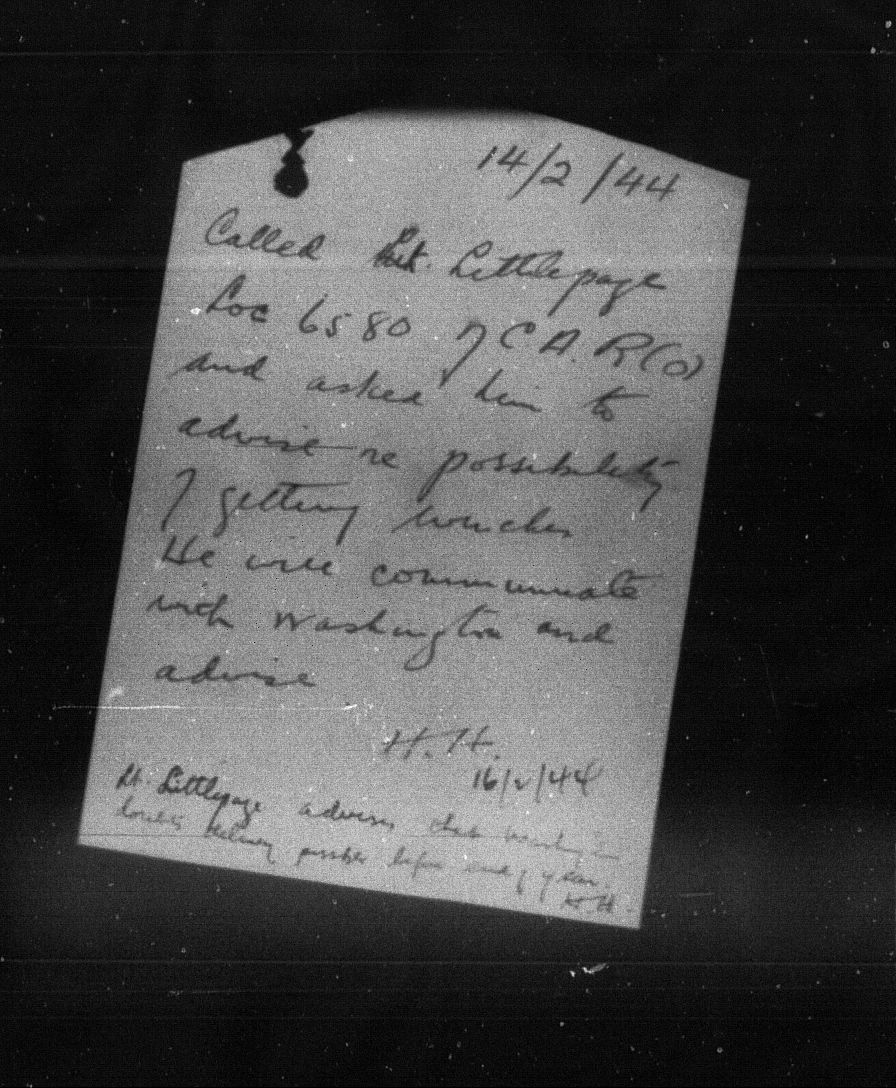 14/2/44
Called Lt. Littlepage
Loc 6580 of C A. R(O)
and asked him to
advise re possibility
of getting winches
He will communicate
with Washington and
advise
H.H.
16/2/44
Lt. Littlepage advises that
delivery possible before end of year.
H.H.